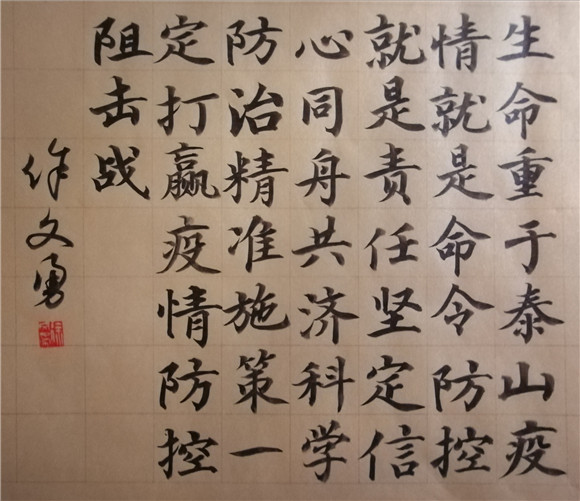 生命重于泰山疫
情就是命令防控
就是责任坚定信
心同舟共济科学
防治精准施策一
定打赢疫情防控
阻击战
徐文勇